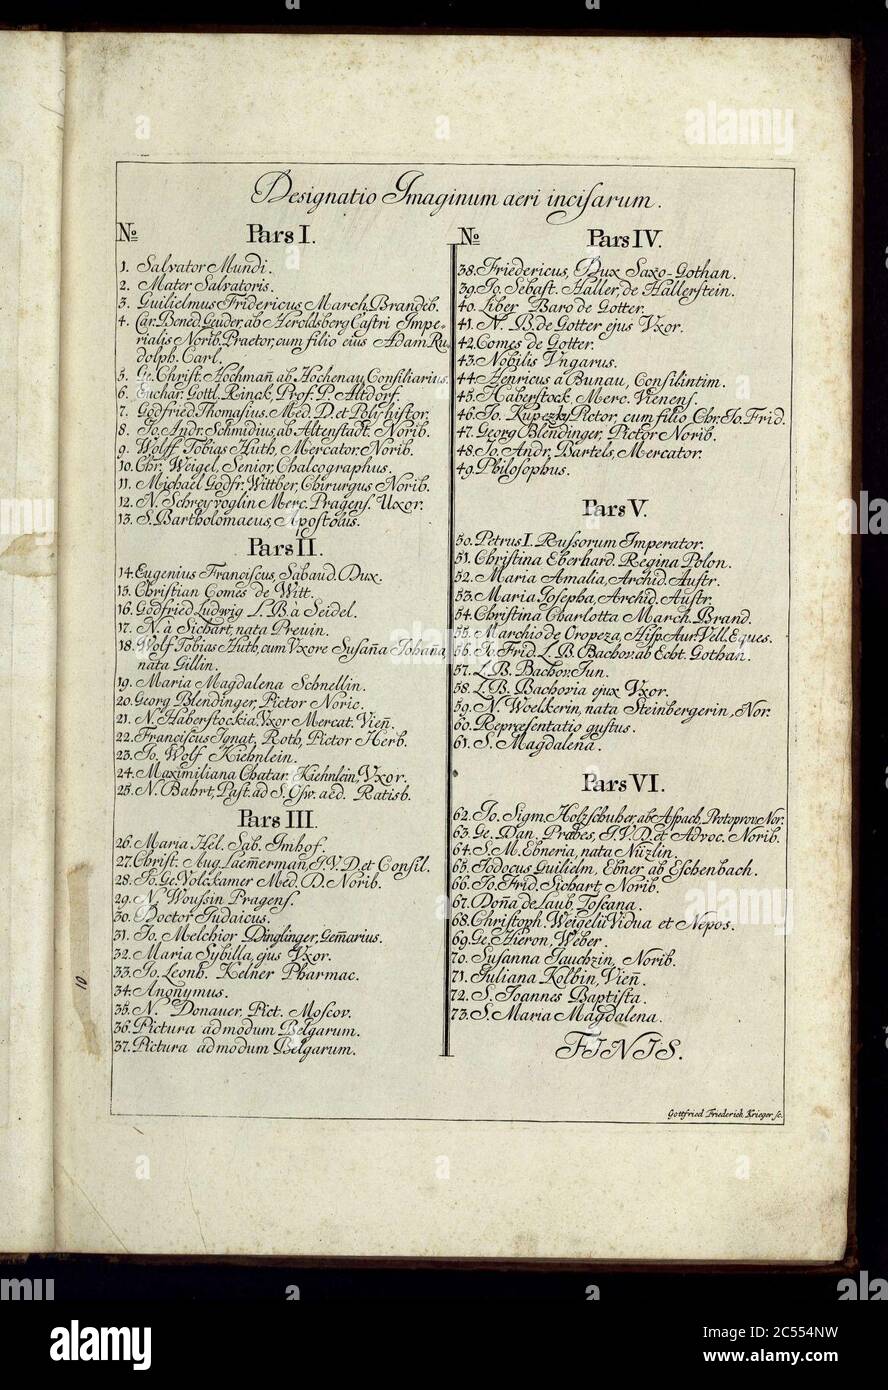 Designatio Imaginum aeri incisarum.
No Pars I.
1. Salvator Mundi.
2. Mater Salvatoris.
3. Guilielmus Fridericus March. Brandeb.
4. Car. Bened. Geuder, ab Heroldsberg Castri Impe-
rialis Norib. Praetor, cum filio eius Adam Ru-
dolph. Carl.
5. Ge. Christ. Hochmañ ab Hochenau, Consiliarius.
6. Euchar. Gottl. Rinck, Prof. P. Altdorf.
7. Godfried Thomasius. Med. D. et Polyhistor.
8. Jo. Andr. Schmidius, ab Altenstadt. Norib.
9. Wolff Tobias Huth, Mercator. Norib.
10. Chr. Weigel, Senior, Chalcographus.
11. Michael Godfr. Wittber, Chirurgus Norib.
12. N. Schreyvoglin Merc. Pragens. Uxor.
13. S. Bartholomaeus, Apostolus.
Pars II.
14. Eugenius Franciscus, Sabaud. Dux.
15. Christian Comes de Witt.
16. Godfried Ludwig L. B. à Seidel.
17. N. à Sichart, nata Previn.
18. Wolf Tobias Huth, cum Vxore Susaña Johaña,
nata Gillin.
19. Maria Magdalena Schnellin.
20. Georg Blendinger, Pictor Noric.
21. N. Haberstockia, Vxor Mercat. Vieñ.
22. Franciscus Ignat, Roth, Pictor Herb.
23. Jo. Wolf Kiehnlein.
24. Maximiliana Chatar. Kiehnlein, Vxor.
25. N. Bahrt, Past. ad S. Osw. aed. Ratisb.
Pars III.
26. Maria Hel. Sab. Imhof.
27. Christ. Aug. Laem̃erman, J. V. D. et Consil.
28. Jo. Ge. Volckamer Med. D. Norib.
29. N. Woussin Pragens.
30. Doctor Judaicus.
31. Jo. Melchior Dinglinger, Gem̃arius.
32. Maria Sybilla, ejus Vxor.
33. Jo. Leonh. Kelner Pharmac.
34. Anonymus.
35. N. Donauer, Pict. Moscov.
36. Pictura ad modum Belgarum.
37. Pictura ad modum Belgarum.
No Pars IV.
38. Friedericus, Dux Saxo-Gothan.
39. Jo. Sebast. Haller, de Hallerstein.
40. Liber Baro de Gotter.
41. N. B. de Gotter ejus Vxor.
42. Comes de Gotter.
43. Nobilis Vngarus.
44. Henricus à Bunau, Consil. intim.
45. Haberstock, Merc. Vienens.
46. Jo. Kupezky Pictor, cum filio Chr. Jo. Frid.
47. Georg Blendinger, Pictor Norib.
48. Jo. Andr. Bartels, Mercator.
49. Philosophus.
Pars V.
50. Petrus I. Russorum Imperator.
51. Christina Eberhard. Regina Polon.
52. Maria Amalia, Archid. Austr.
53. Maria Josepha, Archid. Austr.
54. Christina Charlotta March. Brand.
55. Marchio de Oropeza, Hisp. Aur. Vell. Eques.
56. Jo. Frid. L. B. Bachov. ab Echt. Gothan.
57. L. B. Bachov. Jun.
58. L. B. Bachovia ejux Vxor.
59. N. Woelkerin, nata Steinbergerin, Nor.
60. Repræsentatio gustus.
61. S. Magdalena.
Pars VI.
62. Jo. Sigm. Holzschuher, ab Aspach, Protoprov. Nor.
63. Ge. Dan. Prabes, J. V. D. et Advoc. Norib.
64. S. M. Ebneria, nata Nüzlin.
65. Jodocus Guilielm, Ebner ab Eschenbach.
66. Jo. Frid. Sichart, Norib.
67. Doña de Laub, Toscana.
68. Christoph. Weigelii Vidua et Nepos.
69. Ge. Hieron. Weber.
70. Susanna Jauchzin, Norib.
71. Juliana Kolbin, Vieñ.
72. S. Joannes Baptista.
73. S. Maria Magdalena.
FINIS.
Gottfried Friederich Krieger sc.
10
alamy
Image ID: 2C554NW
www.alamy.com